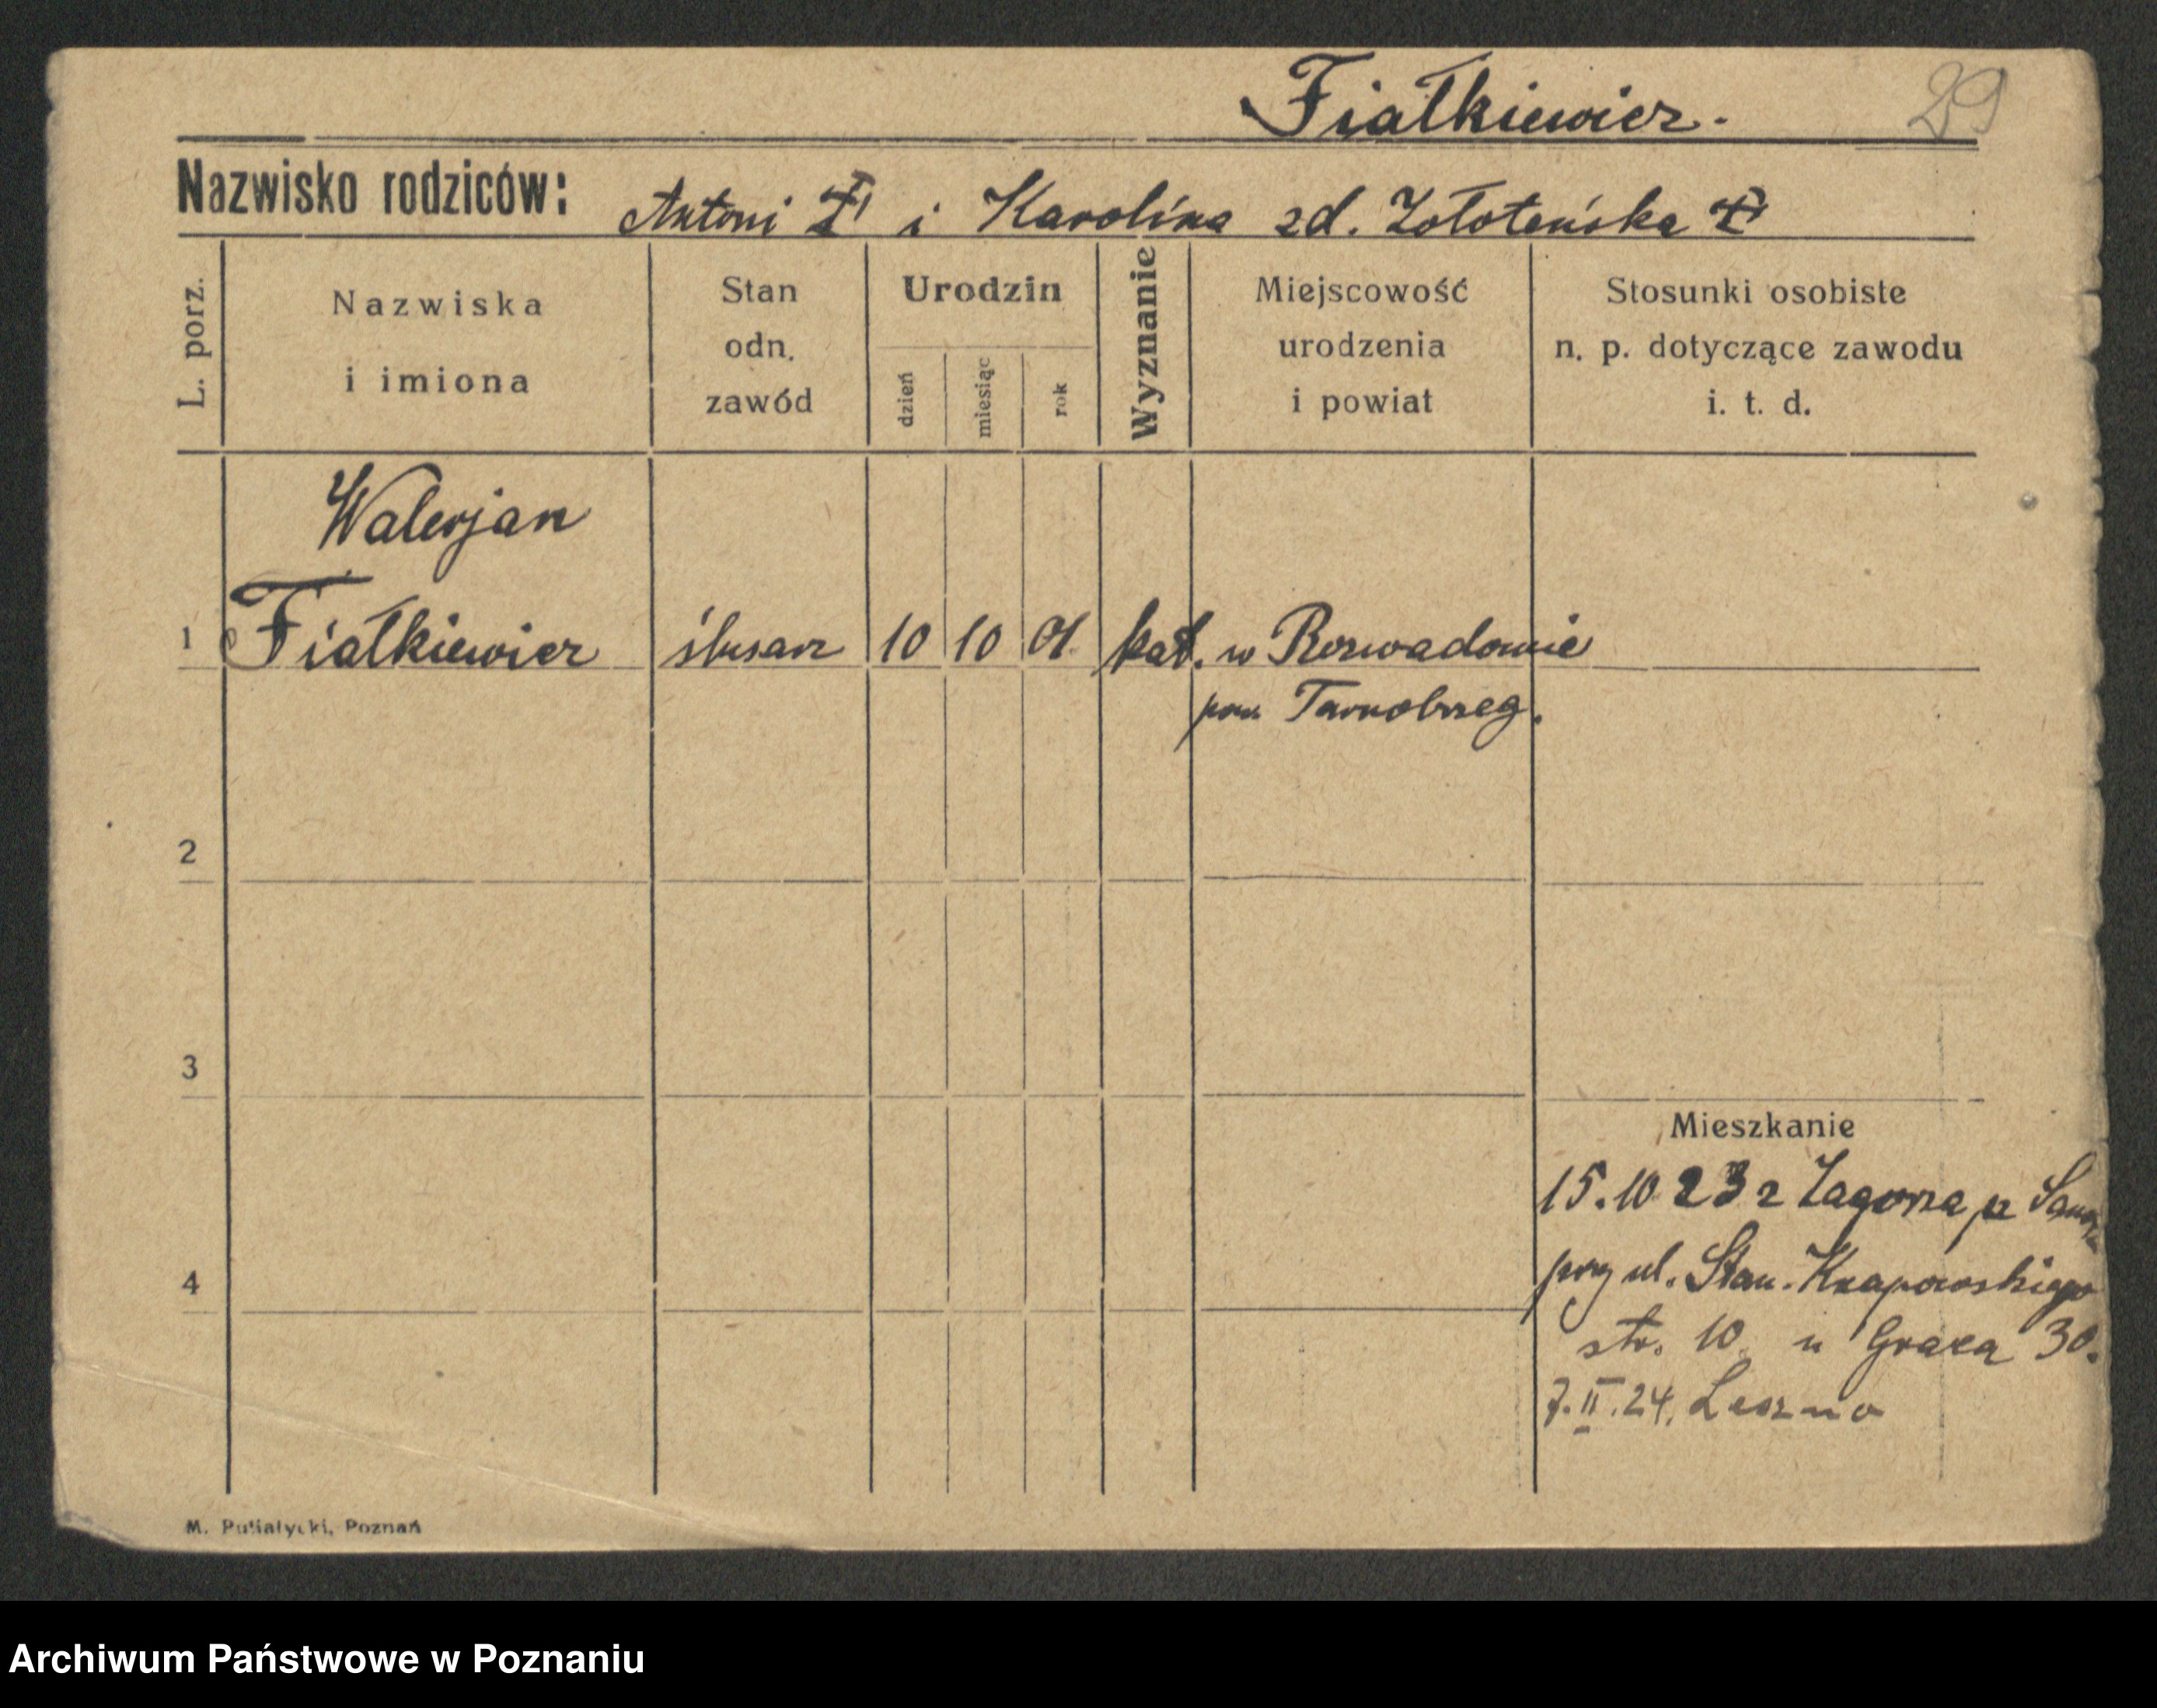 Fiałkiewicz. 29
Nazwisko rodziców: Antoni i Karolina zd. Zołoteńska
L. porz.
Nazwiska i imiona
Stan odn. zawód
Urodzin
dzień
miesiąc
rok
Wyznanie
Miejscowość urodzenia i powiat
Stosunki osobiste n. p. dotyczące zawodu i. t. d.
Walerjan
1 Fiałkiewicz ślusarz 10 10 01 kat. w Rozwadowie
pow. Tarnobrzeg.
2
3
Mieszkanie
15.10 23 z Zagórza
4
przy ul. Stan. Knapowskiego
str. 10. u 30.
7.II.24. Leszno
M. Putiatycki, Poznań
Archiwum Państwowe w Poznaniu